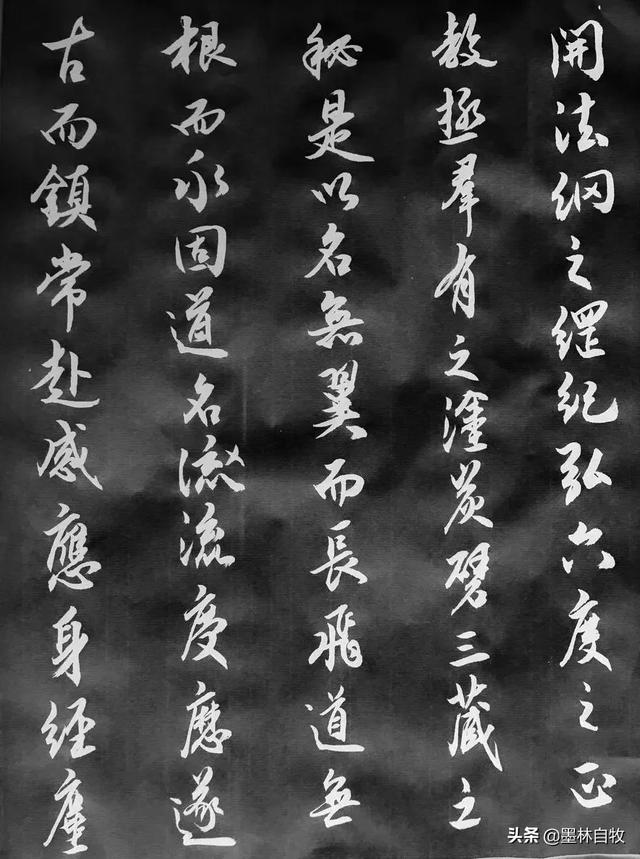 開法網之綱紀弘六度之正
教拯羣有之塗炭啓三藏之
秘是以名無翼而長飛道無
根而永固道名流流慶歷遂
古而鎮常赴感應身經塵
头条 @墨林自牧